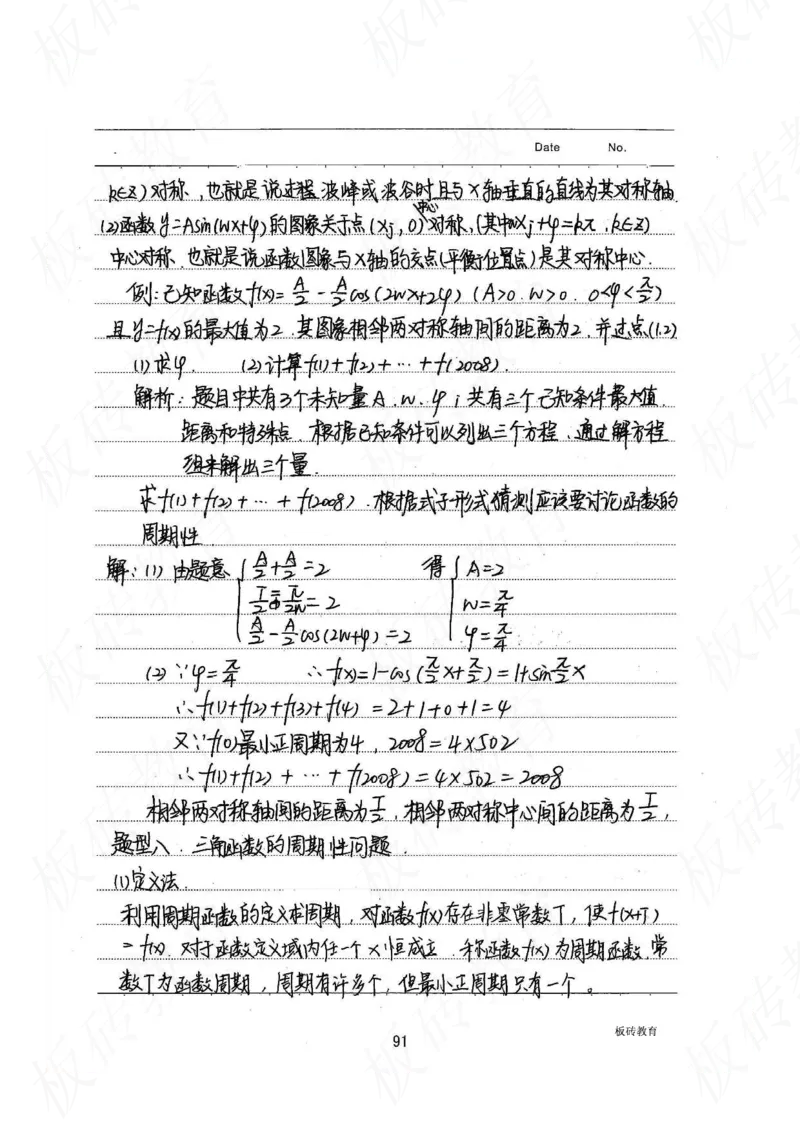 Date No.
k∈Z)对称，也就是说过程波峰或波谷时且与x轴垂直的直线为其对称轴.
(2)函数y=Asin(wx+φ)的图象关于点(xj，0)中心对称，(其中wxj+φ=kπ，k∈Z)
中心对称，也就是说函数图象与x轴的交点(平衡位置点)是其对称中心.
例:已知函数f(x)=A/2-A/2cos(2wx+2φ)(A>0，w>0，0<φ<π/2)
且y=f(x)的最大值为2，其图象相邻两对称轴间的距离为2，并过点(1,2)
(1)求φ. (2)计算f(1)+f(2)+…+f(2008).
解析:题目中共有3个未知量A、w、φ；共有三个已知条件最大值、
距离和特殊点.根据已知条件可以列出三个方程，通过解方程
组来解出三个量.
求f(1)+f(2)+…+f(2008).根据式子形式猜测应该要讨论函数的
周期性
解:(1)由题意 { A/2+A/2=2 得 { A=2
T/2=π/2w=2 w=π/4
A/2-A/2cos(2w+φ)=2 φ=π/4
(2)∵φ=π/4 ∴f(x)=1-cos(π/2x+π/2)=1+sinπ/2x
∴f(1)+f(2)+f(3)+f(4)=2+1+0+1=4
又∵f(0)最小正周期为4，2008=4×502
∴f(1)+f(2)+…+f(2008)=4×502=2008
相邻两对称轴间的距离为T/2，相邻两对称中心间的距离为T/2，
题型八.三角函数的周期性问题.
(1)定义法.
利用周期函数的定义求周期，对函数f(x)存在非零常数T，使f(x+T)
=f(x).对于函数定义域内任一个x恒成立.称函数f(x)为周期函数，常
数T为函数周期，周期有许多个，但最小正周期只有一个。
91
板砖教育